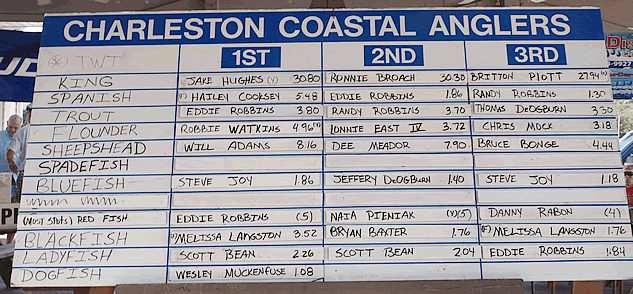 CHARLESTON COASTAL ANGLERS
(*) TWT 1ST 2ND 3RD
KING JAKE HUGHES (Y) 30.80 RONNIE BROACH 30.30 BRITTON PIOTT 27.94
SPANISH HAILEY COOKSEY 5.48 EDDIE ROBBINS 1.86 RANDY ROBBINS 1.30
TROUT EDDIE ROBBINS 3.80 RANDY ROBBINS 3.70 THOMAS DEOGBURN 3.30
FLOUNDER ROBBIE WATKINS 4.96(*) LONNIE EAST IV 3.72 CHRIS MOCK 3.18
SHEEPSHEAD WILL ADAMS 8.16 DEE MEADOR 7.90 BRUCE BONGE 4.44
SPADEFISH
BLUEFISH STEVE JOY 1.86 JEFFERY DEOGBURN 1.40 STEVE JOY 1.18
(MOST SPOTS) RED FISH EDDIE ROBBINS (5) NAIA PIENIAK (Y)(5) DANNY RABON (4)
BLACKFISH MELISSA LANGSTON 3.52 BRYAN BAXTER 1.76 MELISSA LANGSTON 1.76
LADYFISH SCOTT BEAN 2.26 SCOTT BEAN 2.04 EDDIE ROBBINS 1.84
DOGFISH WESLEY MUCKENFUSE 1.08